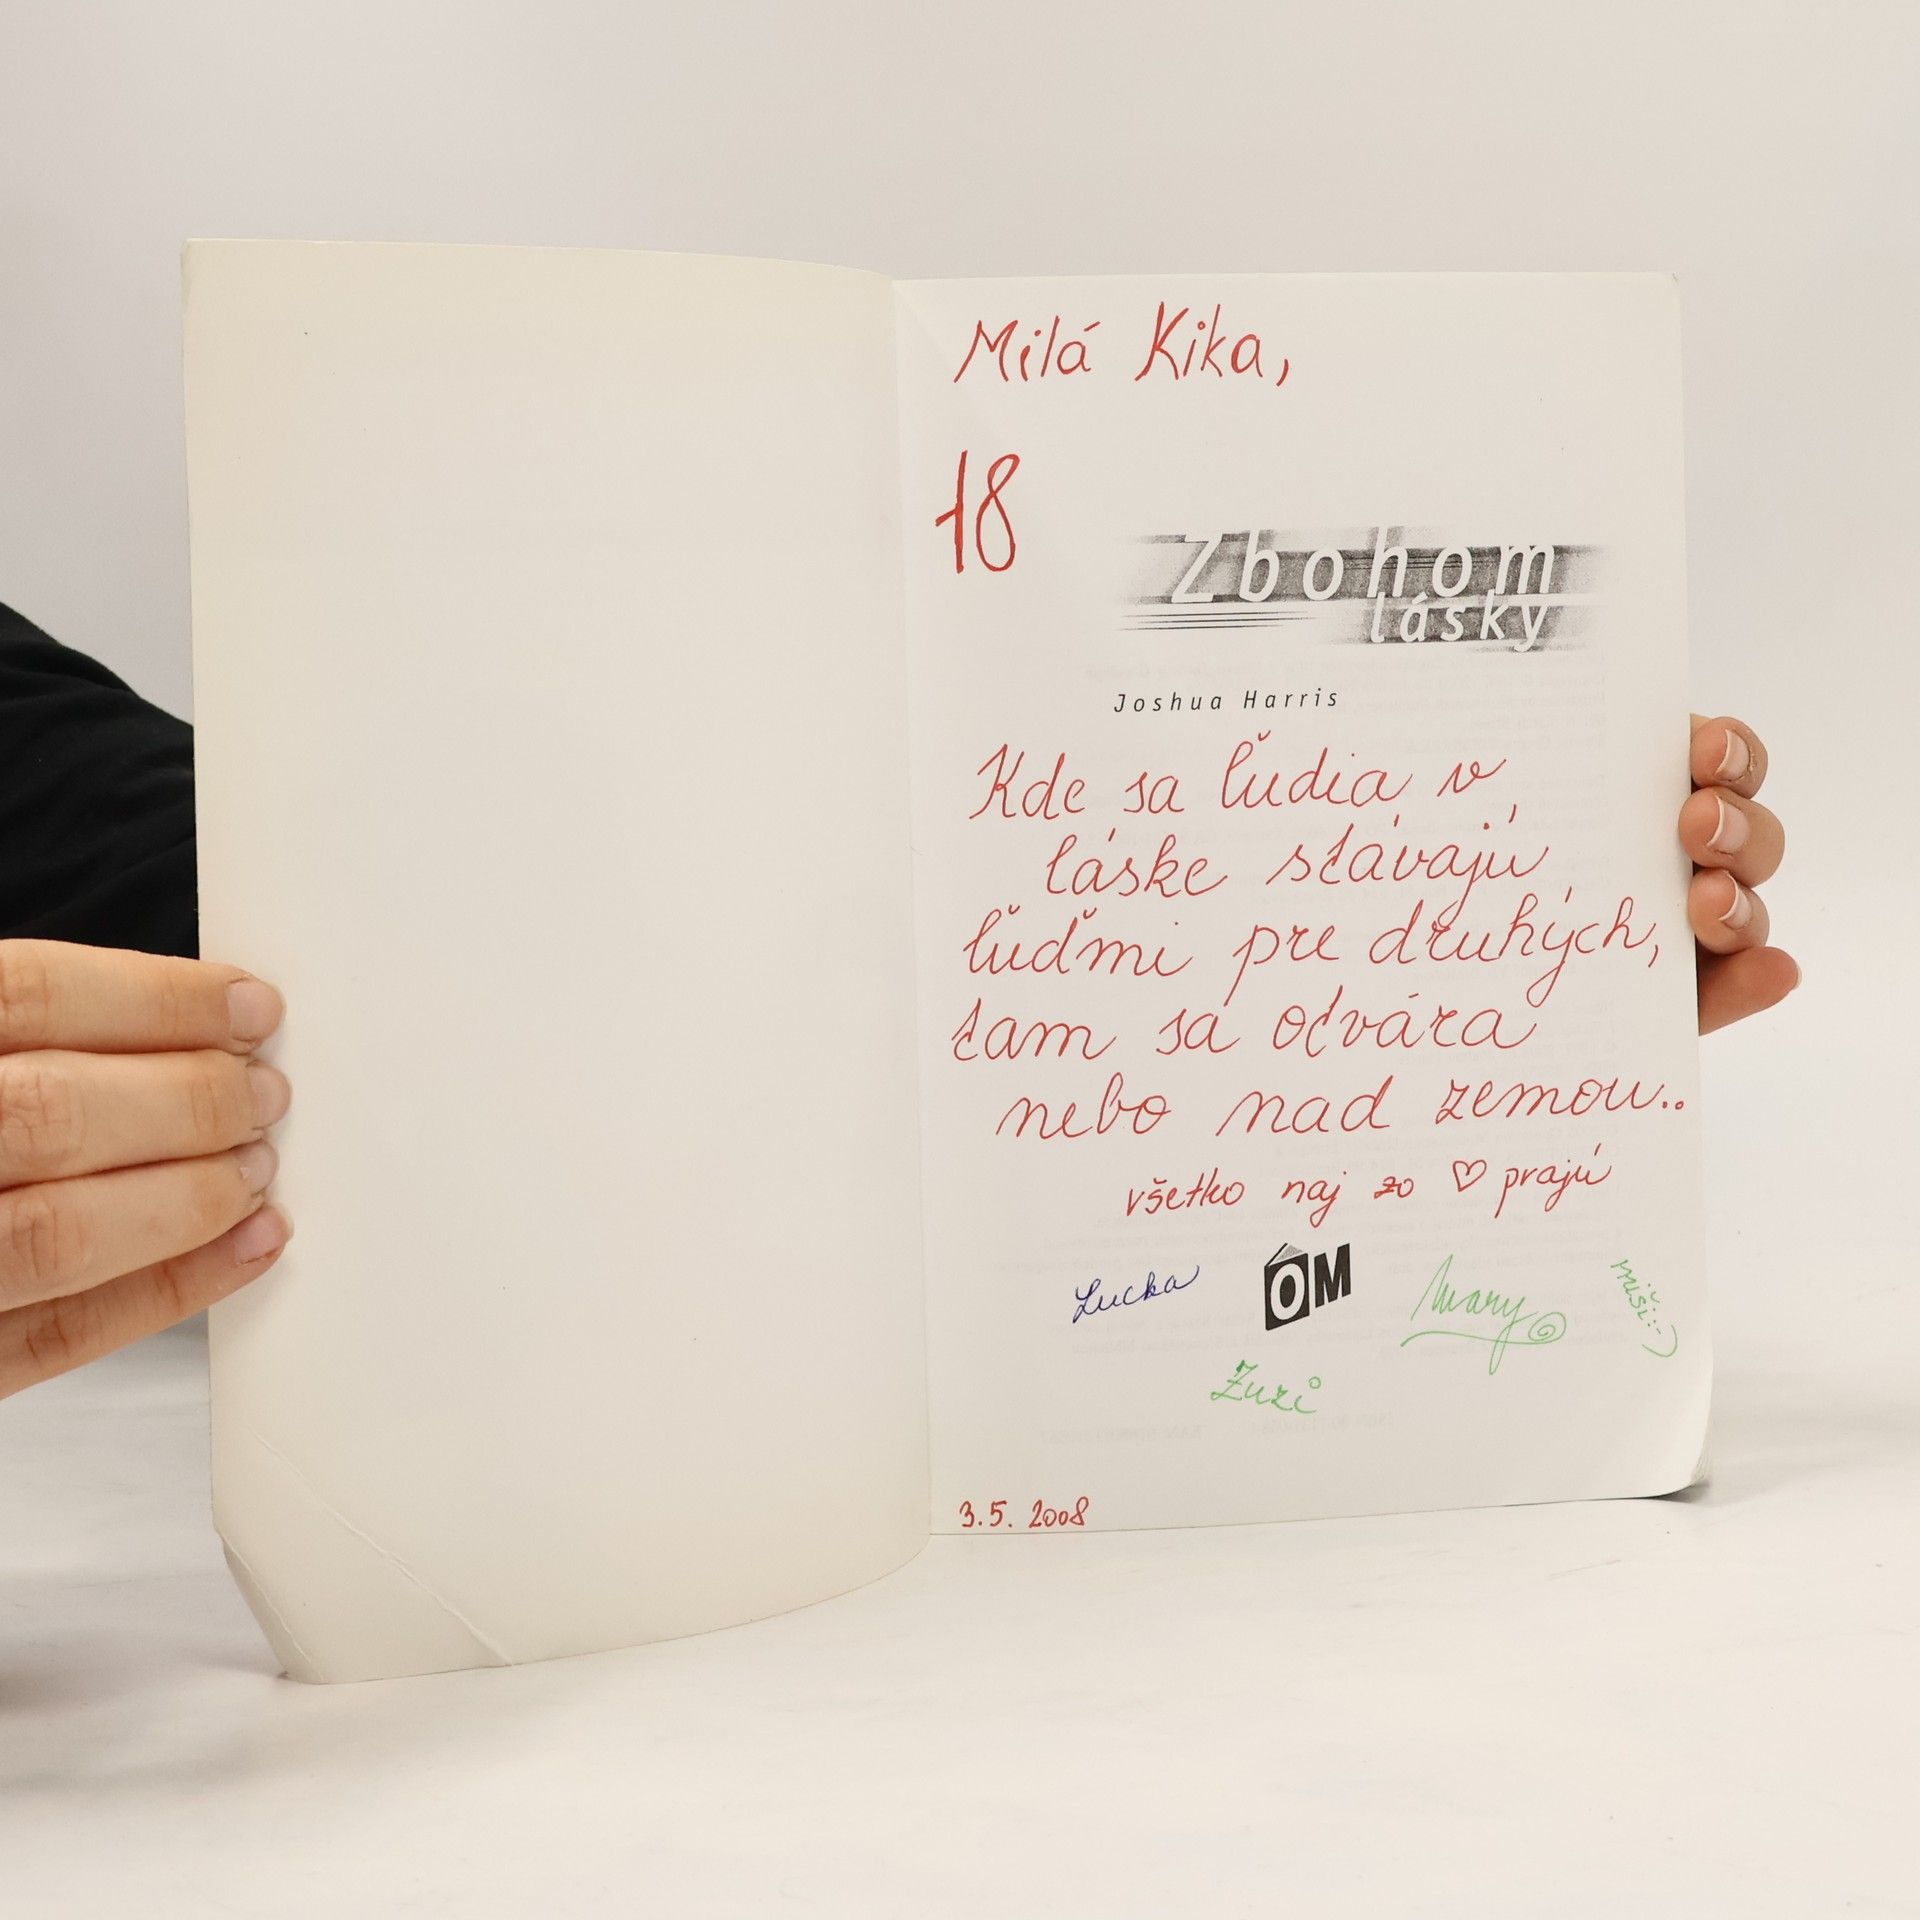 Milá Kika,
18
Zbohom
lásky
Joshua Harris
Kde sa ľudia v
láske stávajú
ľuďmi pre druhých,
tam sa otvára
nebo nad zemou..
všetko naj zo ♡ prajú
Lucka
OM
Mary
miši:-)
Zuzi
3.5. 2008